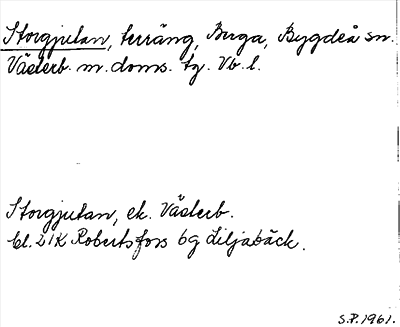 Storgjutan, terräng, Buga, Bygdeå sn.
Västerb. m. doms. tg. Vb. l.
Storgjutan, ek. Västerb.
bl. 21K Robertsfors 6g Liljabäck.
S.P. 1961.